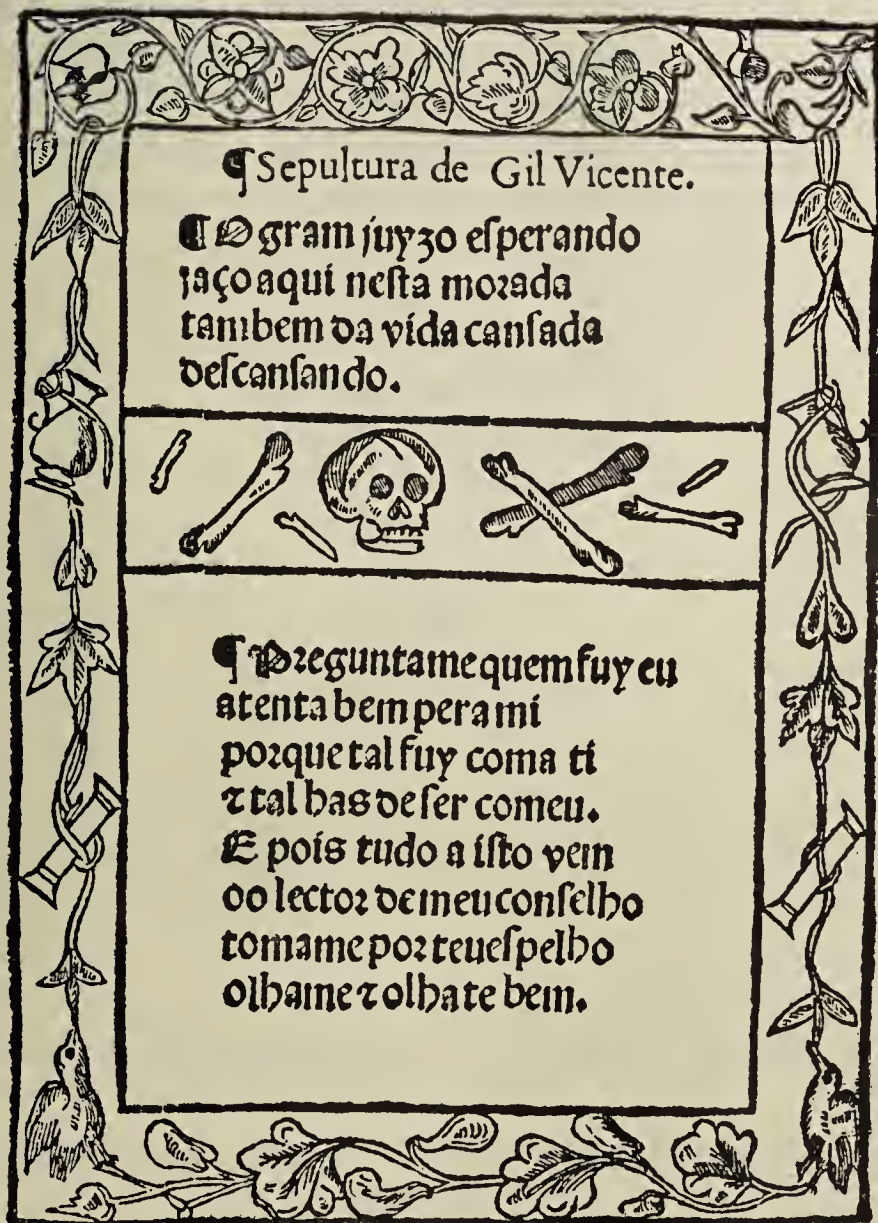 ¶ Sepultura de Gil Vicente.
¶ O gram juyzo eſperando
jaço aqui neſta morada
tambem da vida canſada
deſcanſando.
¶ Preguntame quem fuy eu
atenta bem pera mi
porque tal fuy coma ti
⁊ tal has de ſer comeu.
E pois tudo a iſto vem
oo lector de meu conſelho
tomame por teu eſpelho
olhame ⁊ olha te bem.